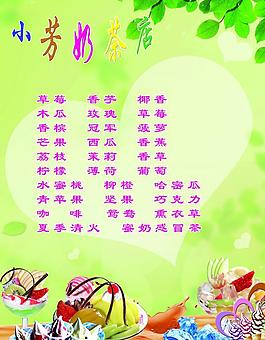 小芳奶茶店
草莓 香芋 椰香
木瓜 玫瑰 草莓
香槟 冠军 菠萝
芒果 西瓜 香蕉
荔枝 茉莉 香草
柠檬 薄荷 葡萄
水蜜桃 柳橙 哈密瓜
青苹果 坚果 巧克力
咖啡 鸳鸯 熏衣草
夏季清火 蜜奶感冒茶